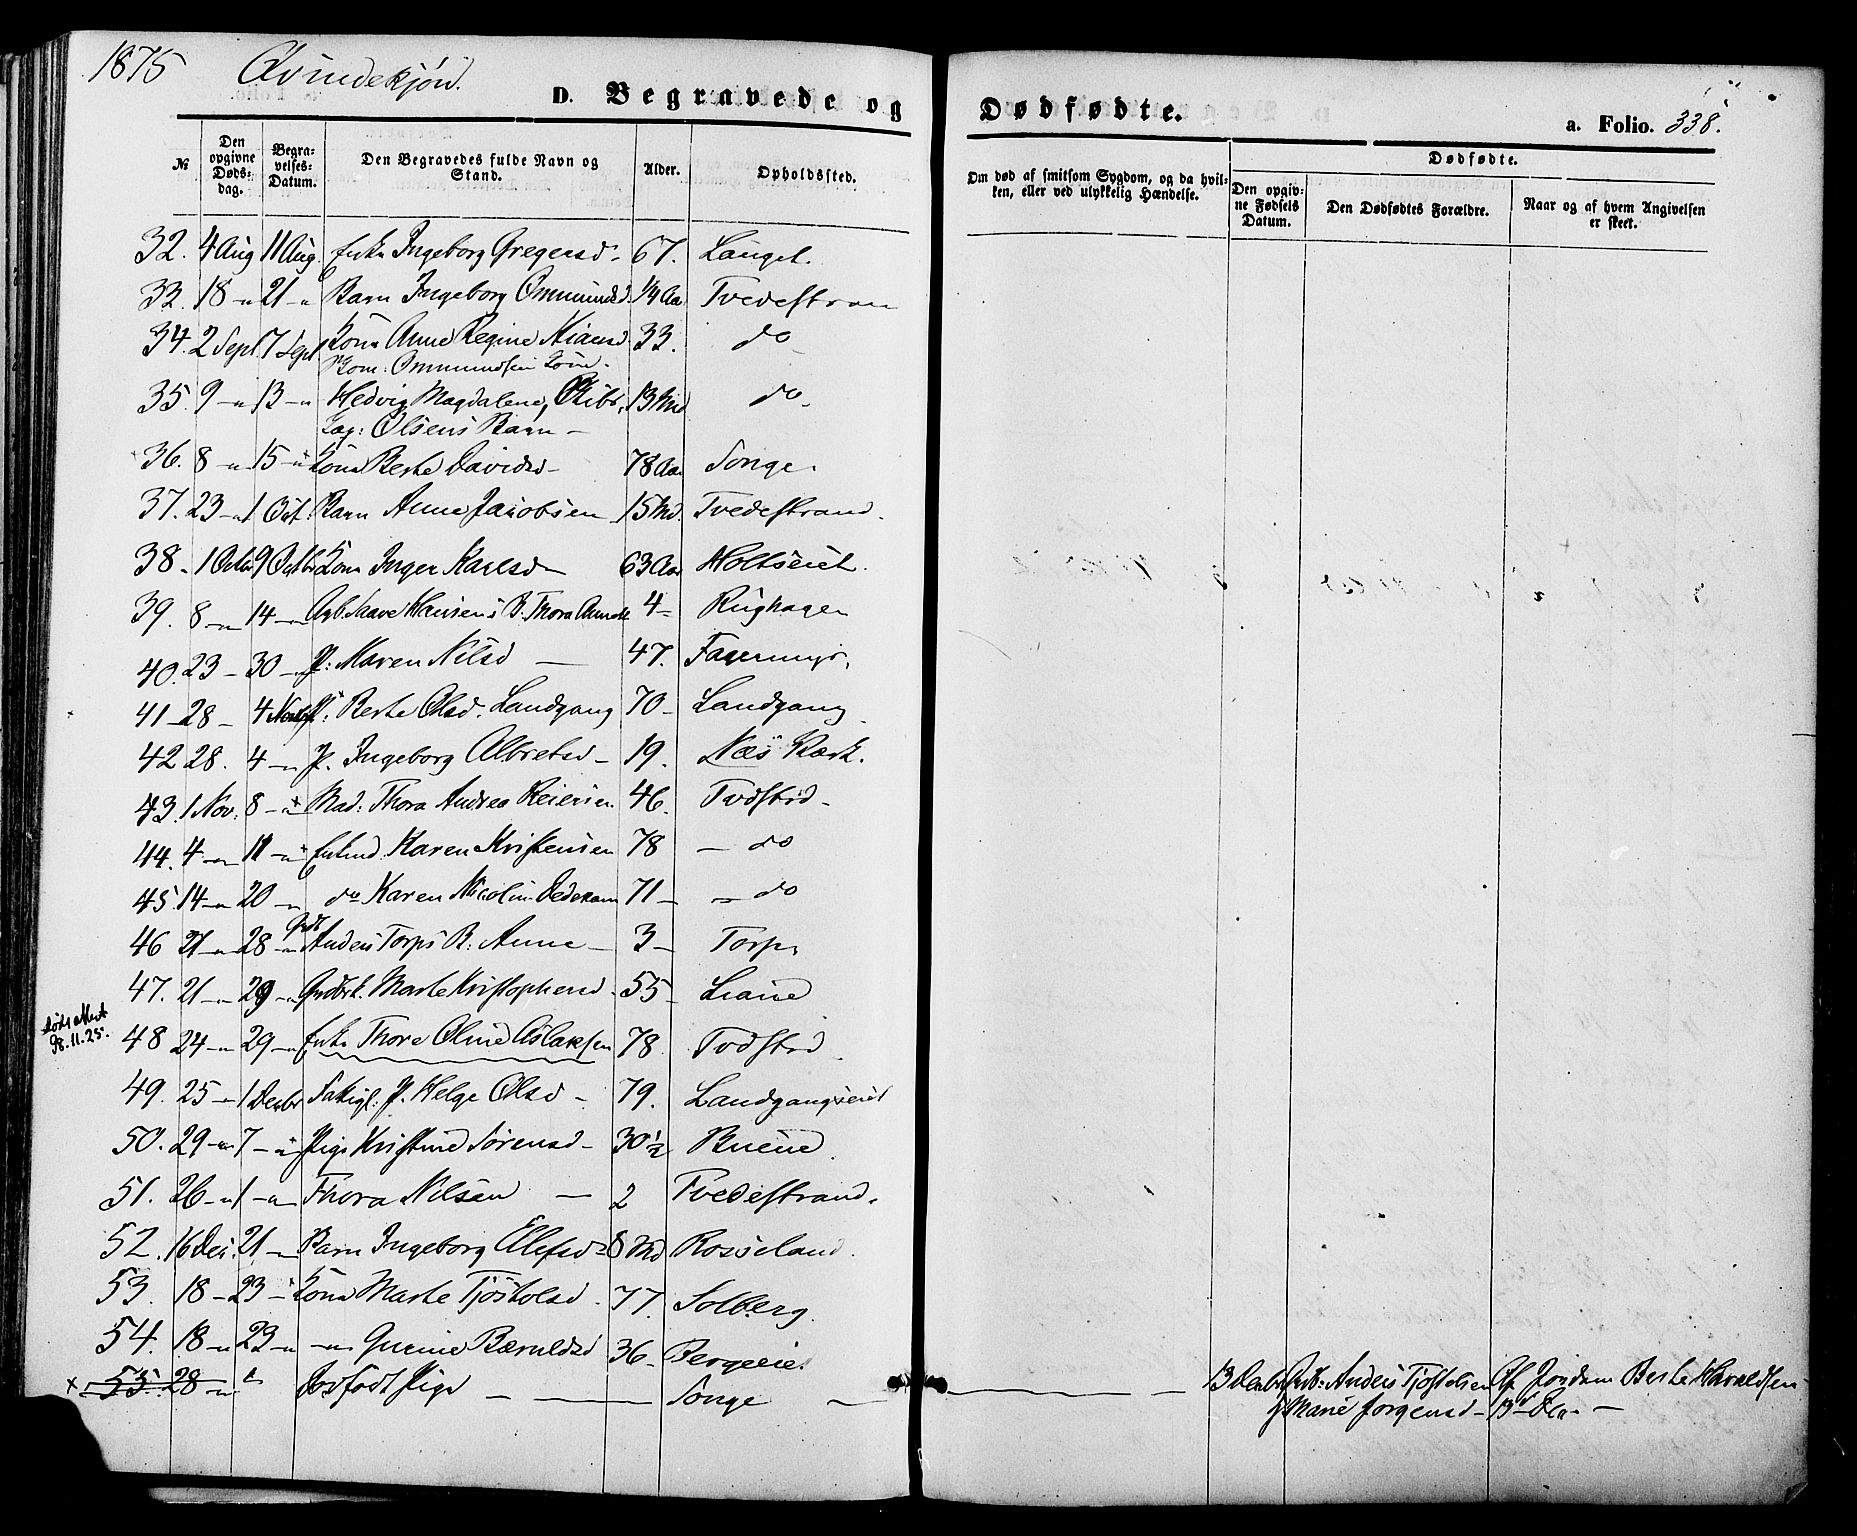 1875 Qvindekjön.
D. Begravede og Dødfødte.
a. Folio. 338.
№ Den opgivne Dødsdag. Begravelses-Datum. Den Begravedes fulde Navn og Stand. Alder. Opholdssted. Om død af smitsom Sygdom, og da hvilken, eller ved ulykkelig Hændelse. Dødfødte. Den opgivne Fødsels Datum. Den Dødfødtes Forældre. Naar og af hvem Angivelsen er skeet.
32. 4 Aug 11 Aug. Enke Ingeborg Gregersd. 67. Langet.
33. 18 - 21 - Barn Ingeborg Ommundsd. 1/4 Aa Tvedestran
34. 2 Sept 7 Sept. Kone Anne Regine 33. do
Ommundsen Kone.
35. 9 - 13 - Hedvig Magdalene, Skibs 13 Md do
Olsens Barn -
36. 8 - 15 - Kone Berte Davidsd - 78 Aa Songe.
37. 23 - 1 Oct. Barn Anne Jacobsen 15 Md. Tvedestrand.
38 - 1 Octbr 9 Octbr Kone Inger Karlsd - 63 Aar Holtseiet.
39. 8 - 14 - Arb. Saave Hansens B. Thora 4 - Rughagen
40. 23 - 30 - P: Maren Nilsd - 47.
41 - 28 - 4 Novbr P: Berte Olsd. Landgang 70 - Landgang
42 28. 4 - P. Ingeborg Albretsd - 19. Næs Værk.
43. 1 Nov: 8 - Mad: Thora Andrea Reiersen 46. Tvdstrd -
44. 4 - 11 - Enkmd. Karen Kristensen 78 - do
45 14 - 20 - do Karen Nicolin Dedekam 71 - - do
46 21 - 28 - Grdb Anders Torps B: Anne - 3 - Torp.
47. 21 - 29 - Grdbrk. Marte Kristophersd - 55 - Liane
Dødsattest
98.11.25.
48 24 - 29 - Enke Thore Oline Aslaksen 78 Tvdstrd
49. 25 - 1 Decbr Fattigl: P. Helge Olsd - 79. Landgangseiet
50. 29 - 7 - Pige Kristine Sørensd - 30 1/2 Buene
51. 26 - 1 - Thora Nilsen - 2 Tvedestrand.
52. 16 Dec. 21 - Barn Ingeborg Ellefsd 8 Md Rosseland.
53. 18 - 23 - Kone Marte Tjøstolsd. 77 Solberg.
54. 18 - 23 - - Gunine Bæruldsd 36 - Bergeeiet
x 55. 28 - Dødfødt Pige - Songe - 13 Decbr Arb: Anders Tjøstolsen Af Jordem Berte Haraldsen
& Marie Jørgensd - 13 - Dec. -